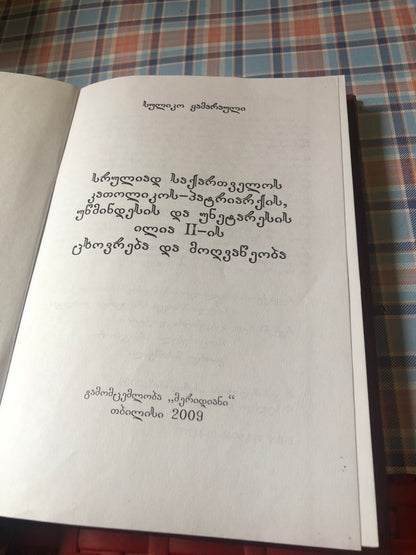 სულიკო ყამარაული
სრულიად საქართველოს
კათოლიკოს-პატრიარქის,
უწმინდესის და უნეტარესის
ილია II-ის
ცხოვრება და მოღვაწეობა
გამომცემლობა „მერიდიანი“
თბილისი 2009